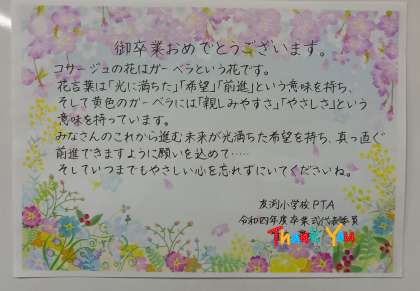 御卒業おめでとうございます。
コサージュの花はガーベラという花です。
花言葉は「光に満ちた」「希望」「前進」という意味を持ち、
そして黄色のガーベラには「親しみやすさ」「やさしさ」という
意味を持っています。
みなさんのこれから進む未来が光満ちた希望を持ち、真っ直ぐ
前進できますように願いを込めて‥‥‥
そしていつまでもやさしい心を忘れずにいてくださいね。
友渕小学校PTA
令和四年度卒業式代表委員
Thank You